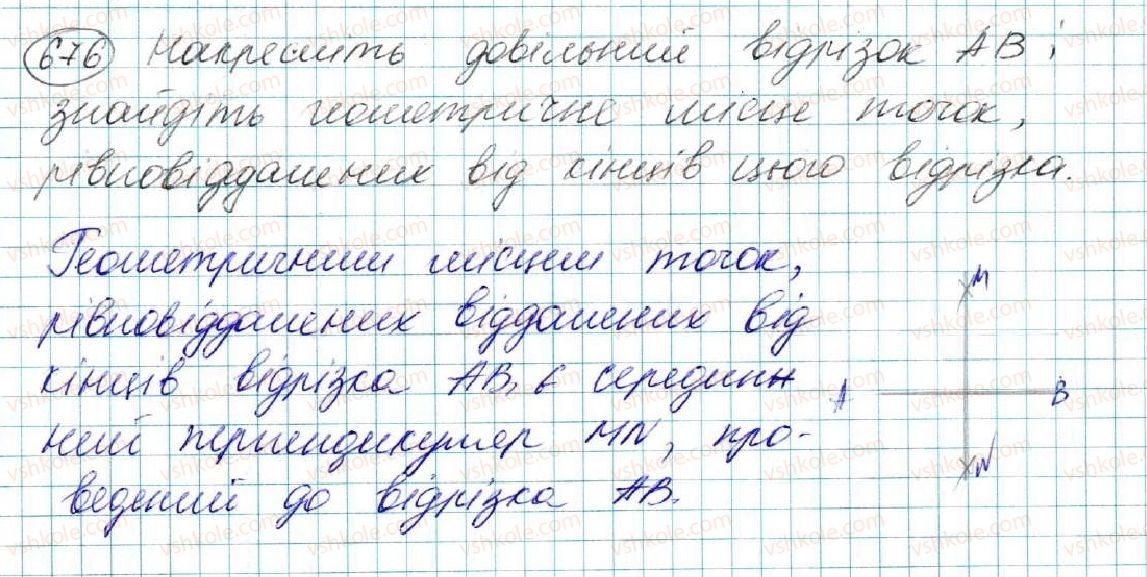 676 Накресліть довільний відрізок AB і
знайдіть геометричне місце точок,
рівновіддалених від кінців цього відрізка.
Геометричним місцем точок,
рівновіддалених віддалених від
кінців відрізка AB, є серединн
ний перпендикуляр MN, про-
ведений до відрізка AB.
M
A B
N
vshkole.com